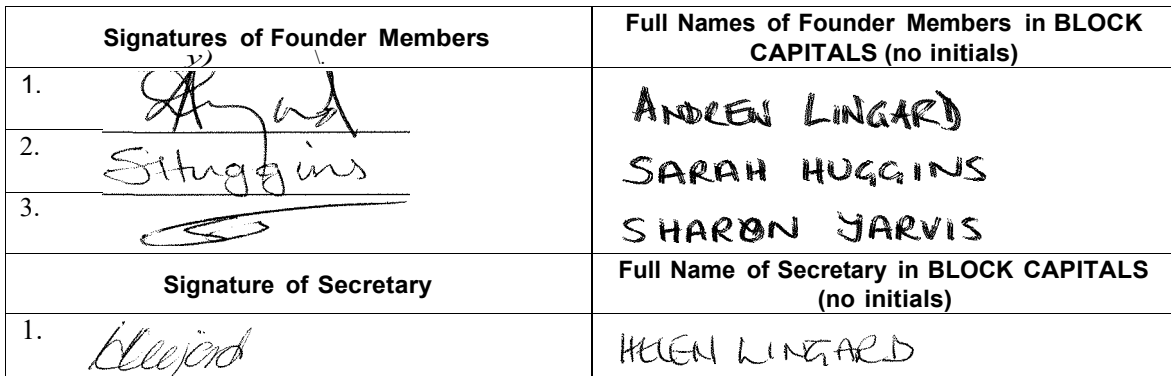 Signatures of Founder Members
Full Names of Founder Members in BLOCK
CAPITALS (no initials)
1.
ANDREW LINGARD
2.
SHuggins
SARAH HUGGINS
3.
SHARON JARVIS
Signature of Secretary
Full Name of Secretary in BLOCK CAPITALS
(no initials)
1.
HELEN LINGARD